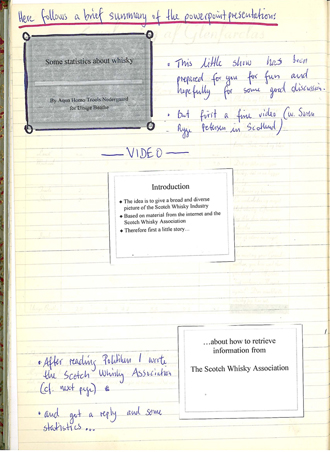 Here follows a brief summary of the powerpoint presentation:
Some statistics about whisky
for
• This little show has been
prepared for you for fun and
hopefully for some good discussion.
• But first a fine video (w. Søren
in Scotland)
— VIDEO —
Introduction
• The idea is to give a broad and diverse
picture of the Scotch Whisky Industry
• Based on material from the internet and the
Scotch Whisky Association
• Therefore first a little story...
...about how to retrieve
information from
The Scotch Whisky Association
• After reading Politiken I wrote
the Scotch Whisky Association
(cf. next page)
• and got a reply and some
statistics ...